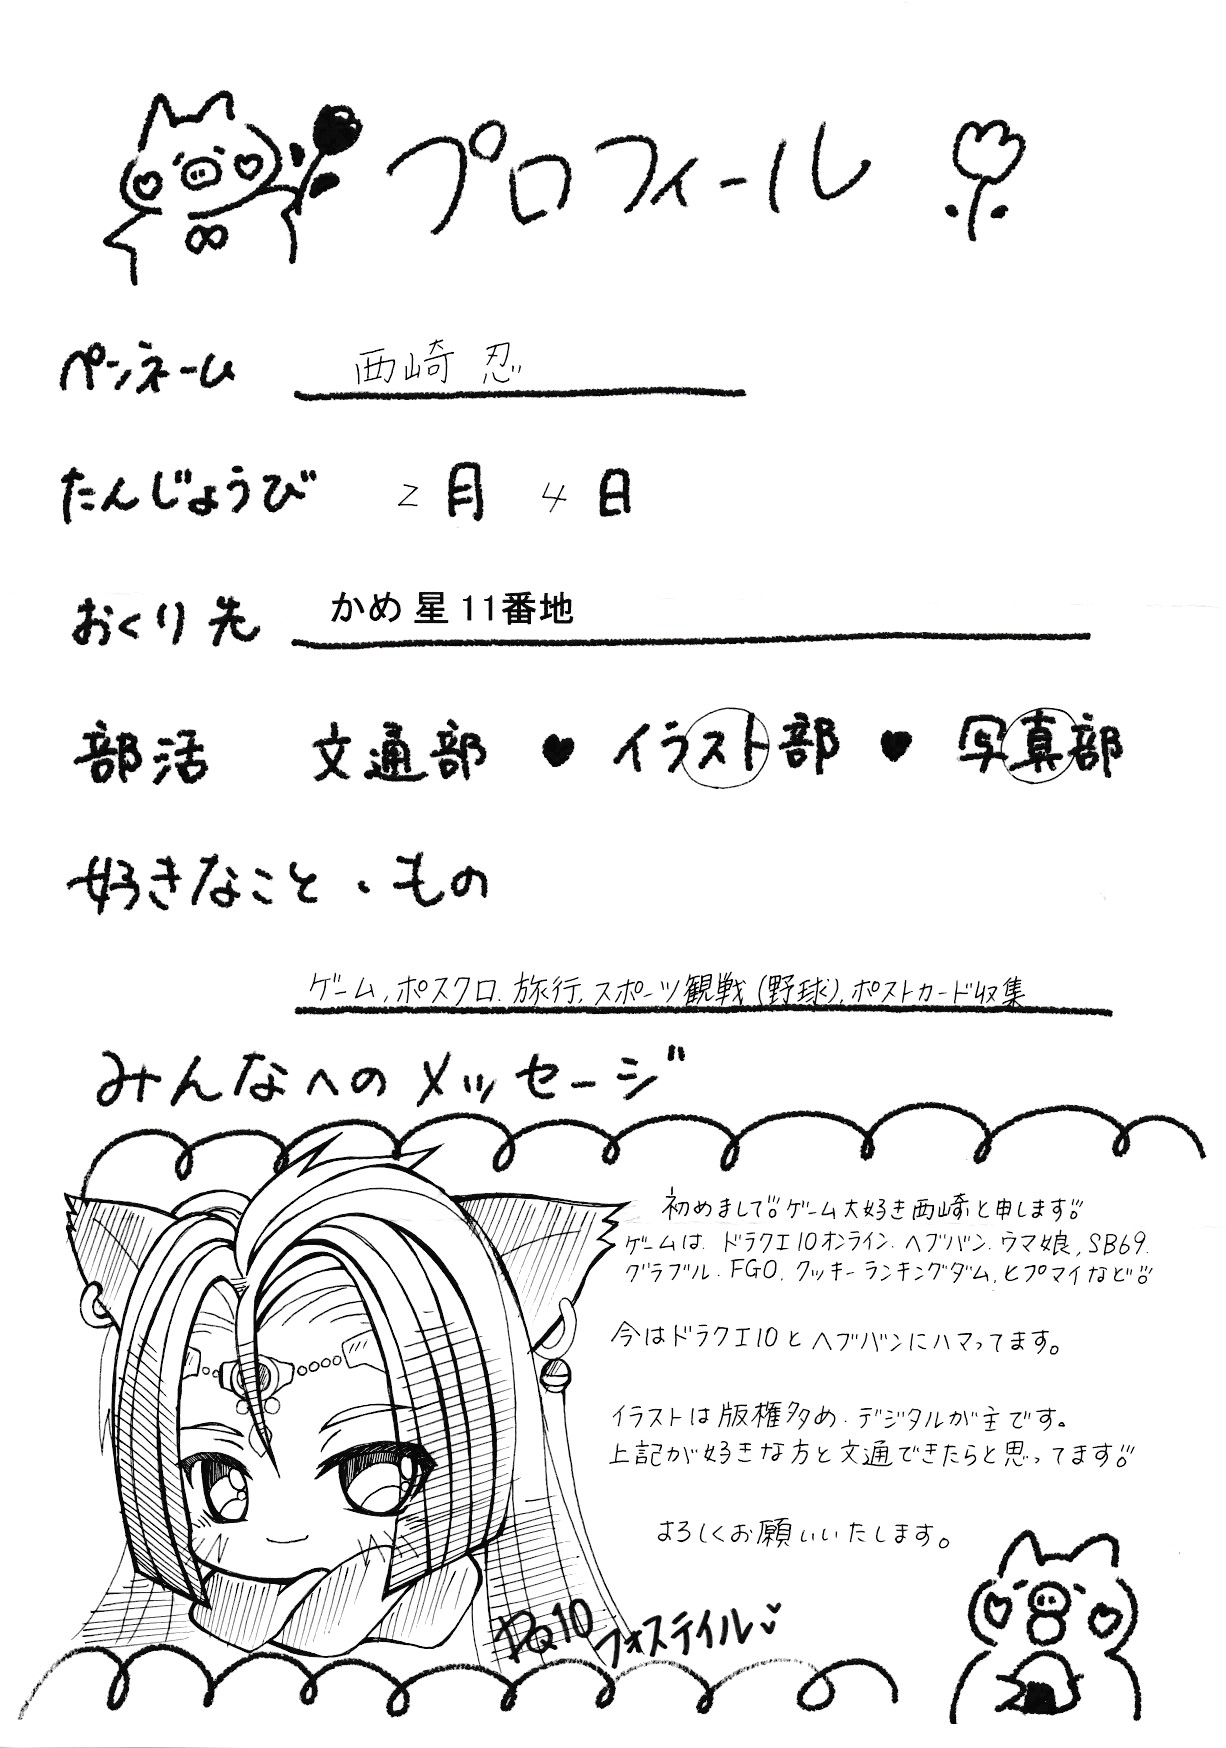 プロフィール
ペンネーム 西崎 忍
たんじょうび 2月 4日
おくり先 かめ 星 11番地
部活 文通部 ♥ イラスト部 ♥ 写真部
好きなこと・もの
ゲーム, ポスクロ. 旅行, スポーツ観戦 (野球), ポストカード収集
みんなへのメッセージ
初めまして!! ゲーム大好き西崎と申します!!
ゲームは. ドラクエ10オンライン. ヘブバン. ウマ娘, SB69.
グラブル. FGO. クッキーランキングダム, ヒプマイなど!!
今はドラクエ10とヘブバンにハマってます。
イラストは版権多め. デジタルが主です。
上記が好きな方と文通できたらと思ってます!!
よろしくお願いいたします。
DQ10 フォステイル